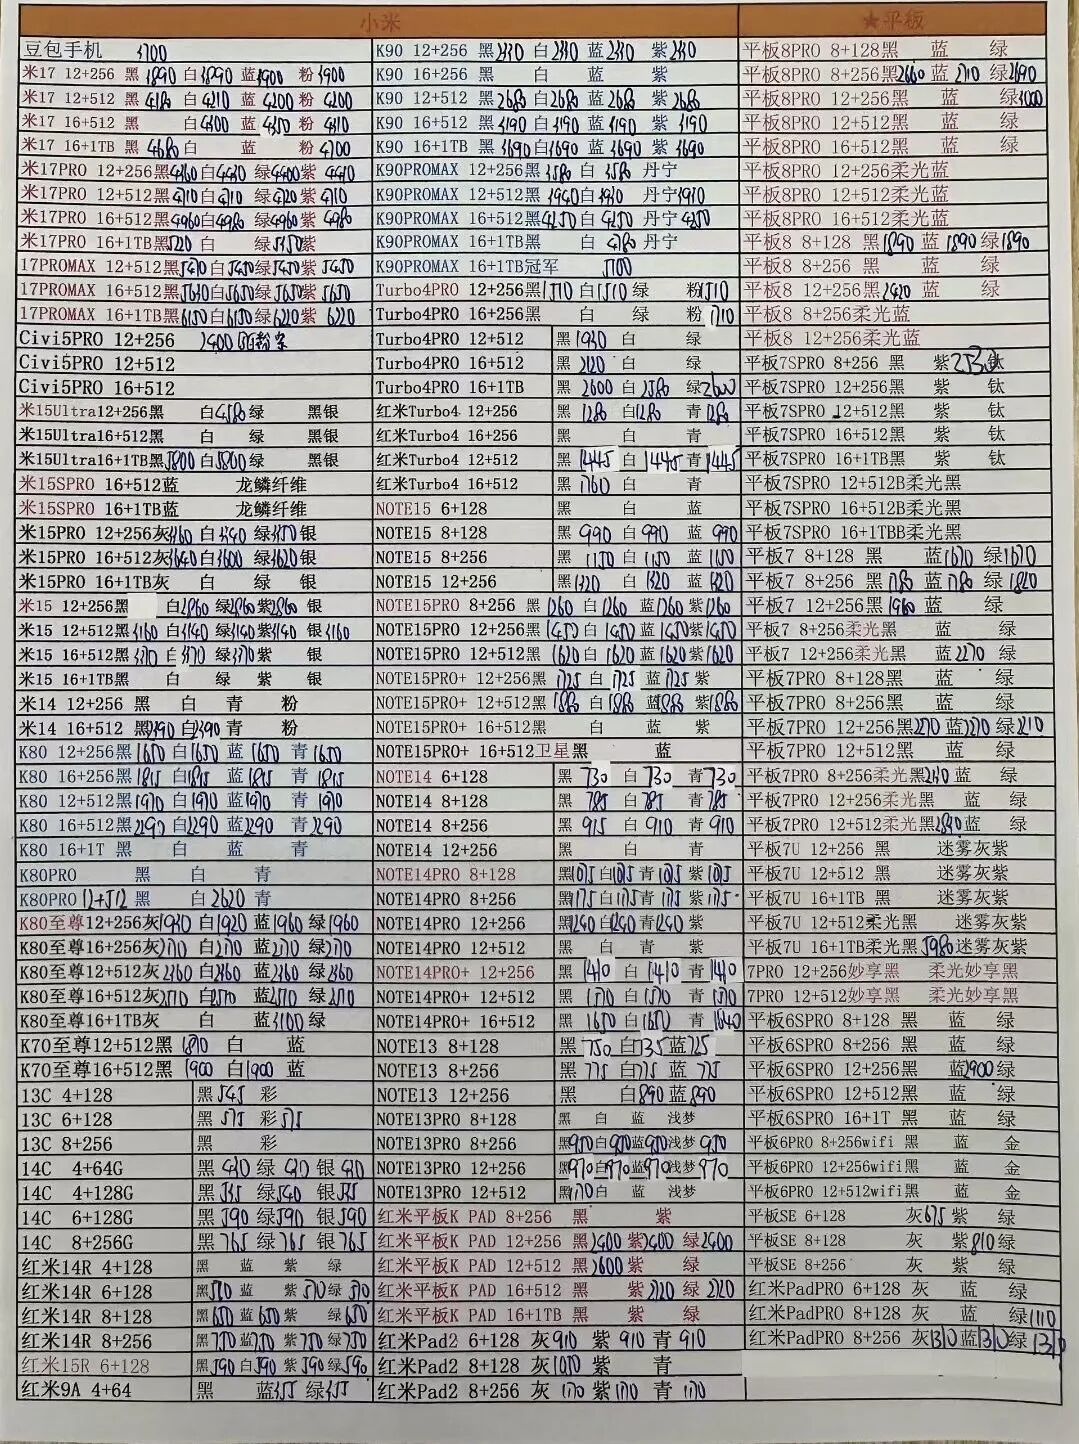 小米
豆包手机 3700
米17 12+256 黑3890 白3890 蓝3900 粉3900
米17 12+512 黑4180 白4210 蓝4200 粉4200
米17 16+512 黑 白4300 蓝4350 粉4310
米17 16+1TB 黑4680 白 蓝 粉4700
米17PRO 12+256黑4360白4430 绿4400紫4410
米17PRO 12+512黑4710白4710 绿4720紫4710
米17PRO 16+512黑4960白4980 绿4960紫4980
米17PRO 16+1TB黑5320 白 绿5350紫
17PROMAX 12+512黑5430白5450绿5450紫5450
17PROMAX 16+512黑5630白5650绿5650紫5650
17PROMAX 16+1TB黑6150白6150绿6220紫6220
Civi5PRO 12+256 2400
Civi5PRO 12+512
Civi5PRO 16+512
米15Ultra12+256黑 白4580绿 黑银
米15Ultra16+512黑 白 绿 黑银
米15Ultra16+1TB黑5800白5800绿 黑银
米15SPRO 16+512蓝 龙鳞纤维
米15SPRO 16+1TB蓝 龙鳞纤维
米15PRO 12+256灰3360白3340 绿3350银
米15PRO 16+512灰3640白3600 绿3620银
米15PRO 16+1TB灰 白 绿 银
米15 12+256黑 白2860 绿2860紫2860 银
米15 12+512黑3160 白3140 绿3140紫3140 银3160
米15 16+512黑3370 白3370 绿3370紫 银
米15 16+1TB黑 白 绿 紫 银
米14 12+256 黑 白 青 粉
米14 16+512 黑2390 白2390 青 粉
K80 12+256黑1650 白1650 蓝1650 青1650
K80 16+256黑1815 白1815 蓝1815 青1815
K80 12+512黑1970 白1970 蓝1970 青1970
K80 16+512黑2290 白2290 蓝2290 青2290
K80 16+1T 黑 白 蓝 青
K80PRO 黑 白 青
K80PRO 12+512 黑 白2620 青
K80至尊12+256灰1920 白1920 蓝1960 绿1960
K80至尊16+256灰2170 白2170 蓝2170 绿2170
K80至尊12+512灰2360 白2360 蓝2360 绿2360
K80至尊16+512灰2570 白2570 蓝2570 绿2570
K80至尊16+1TB灰 白 蓝3100绿
K70至尊12+512黑1870 白 蓝
K70至尊16+512黑1900 白1900 蓝
13C 4+128 黑545 彩
13C 6+128 黑575 彩575
13C 8+256 黑 彩
14C 4+64G 黑430 绿430 银430
14C 4+128G 黑535 绿540 银535
14C 6+128G 黑590 绿590 银590
14C 8+256G 黑765 绿765 银765
红米14R 4+128 黑 蓝 紫 绿
红米14R 6+128 黑570 蓝 紫570 绿570
红米14R 8+128 黑650 蓝650 紫 绿650
红米14R 8+256 黑750 蓝750 紫750 绿750
红米15R 6+128 黑590 白590 紫590 绿590
红米9A 4+64 黑 蓝455 绿455
K90 12+256 黑2330 白2330 蓝2330 紫2330
K90 16+256 黑 白 蓝 紫
K90 12+512 黑2680白2680 蓝2680 紫2680
K90 16+512 黑3190白3190 蓝3190 紫3190
K90 16+1TB 黑3690白3690 蓝3690 紫3690
K90PROMAX 12+256黑3580 白3580 丹宁
K90PROMAX 12+512黑3940白3930 丹宁3930
K90PROMAX 16+512黑4250白4250 丹宁4250
K90PROMAX 16+1TB黑 白4780 丹宁
K90PROMAX 16+1TB冠军 5100
Turbo4PRO 12+256黑1510白1510 绿 粉1510
Turbo4PRO 16+256黑 白 绿 粉1710
Turbo4PRO 12+512 黑1930 白 绿
Turbo4PRO 16+512 黑2120 白 绿
Turbo4PRO 16+1TB 黑2600 白2580 绿2600
红米Turbo4 12+256 黑1280 白1280 青1280
红米Turbo4 16+256 黑 白 青
红米Turbo4 12+512 黑1445 白1445 青1445
红米Turbo4 16+512 黑1760 白 青
NOTE15 6+128 黑 白 蓝
NOTE15 8+128 黑990 白990 蓝990
NOTE15 8+256 黑1150 白1150 蓝1150
NOTE15 12+256 黑1320 白1320 蓝1320
NOTE15PRO 8+256 黑1260 白1260 蓝1260紫1260
NOTE15PRO 12+256黑1450白1450 蓝1450紫1450
NOTE15PRO 12+512黑1620白1620 蓝1620紫1620
NOTE15PRO+ 12+256黑1725 白1725 蓝1725 紫
NOTE15PRO+ 12+512黑1880 白1880 蓝1880 紫1880
NOTE15PRO+ 16+512黑 白 蓝 紫
NOTE15PRO+ 16+512卫星黑 蓝
NOTE14 6+128 黑730 白730 青730
NOTE14 8+128 黑785 白785 青785
NOTE14 8+256 黑915 白910 青910
NOTE14 12+256 黑 白 青
NOTE14PRO 8+128 黑1075白1075青1075紫1075
NOTE14PRO 8+256 黑1175白1175青1175紫1175
NOTE14PRO 12+256 黑1240白1240青1240紫
NOTE14PRO 12+512 黑 白 青 紫
NOTE14PRO+ 12+256 黑1410 白1410 青1410
NOTE14PRO+ 12+512 黑1570 白1570 青1570
NOTE14PRO+ 16+512 黑1650 白1650 青1640
NOTE13 8+128 黑750 白735蓝725
NOTE13 8+256 黑775 白775蓝775
NOTE13 12+256 黑 白890蓝890
NOTE13PRO 8+128 黑 白 蓝 浅梦
NOTE13PRO 8+256 黑950白950蓝950浅梦950
NOTE13PRO 12+256 黑970白970蓝970浅梦970
NOTE13PRO 12+512 黑1170白 蓝 浅梦
红米平板K PAD 8+256 黑 紫
红米平板K PAD 12+256 黑2400 紫2400 绿2400
红米平板K PAD 12+512 黑2600紫 绿
红米平板K PAD 16+512 黑 紫2720 绿2720
红米平板K PAD 16+1TB 黑 紫 绿
红米Pad2 6+128 灰910 紫910 青910
红米Pad2 8+128 灰1050 紫 青
红米Pad2 8+256 灰1170 紫1170 青1170
★平板
平板8PRO 8+128黑 蓝 绿
平板8PRO 8+256黑2660 蓝2710 绿2690
平板8PRO 12+256黑 蓝 绿3000
平板8PRO 12+512黑 蓝 绿
平板8PRO 16+512黑 蓝 绿
平板8PRO 12+256柔光蓝
平板8PRO 12+512柔光蓝
平板8PRO 16+512柔光蓝
平板8 8+128 黑1890 蓝1890 绿1890
平板8 8+256 黑 蓝 绿
平板8 12+256 黑2420 蓝 绿
平板8 8+256柔光蓝
平板8 12+256柔光蓝
平板7SPRO 8+256 黑 紫2530钛
平板7SPRO 12+256黑 紫 钛
平板7SPRO 12+512黑 紫 钛
平板7SPRO 16+512黑 紫 钛
平板7SPRO 16+1TB黑 紫 钛
平板7SPRO 12+512B柔光黑
平板7SPRO 16+512B柔光黑
平板7SPRO 16+1TBB柔光黑
平板7 8+128 黑 蓝1670 绿1670
平板7 8+256 黑1780 蓝1780 绿1820
平板7 12+256黑1960 蓝 绿
平板7 8+256柔光黑 蓝 绿
平板7 12+256柔光黑 蓝2270 绿
平板7PRO 8+128黑 蓝 绿
平板7PRO 8+256黑 蓝 绿
平板7PRO 12+256黑2270蓝2270绿2210
平板7PRO 12+512黑 蓝 绿
平板7PRO 8+256柔光黑2130蓝 绿
平板7PRO 12+256柔光黑 蓝 绿
平板7PRO 12+512柔光黑2830蓝 绿
平板7U 12+256 黑 迷雾灰紫
平板7U 12+512 黑 迷雾灰紫
平板7U 16+1TB 黑 迷雾灰紫
平板7U 12+512柔光黑 迷雾灰紫
平板7U 16+1TB柔光黑5980迷雾灰紫
7PRO 12+256妙享黑 柔光妙享黑
7PRO 12+512妙享黑 柔光妙享黑
平板6SPRO 8+128 黑 蓝 绿
平板6SPRO 8+256 黑 蓝 绿
平板6SPRO 12+256黑 蓝2900绿
平板6SPRO 12+512黑 蓝 绿
平板6SPRO 16+1T 黑 蓝 绿
平板6PRO 8+256wifi 黑 蓝 金
平板6PRO 12+256wifi黑 蓝 金
平板6PRO 12+512wifi黑 蓝 金
平板SE 6+128 灰675 紫 绿
平板SE 8+128 灰 紫810绿
平板SE 8+256 灰 紫 绿
红米PadPRO 6+128 灰 蓝 绿
红米PadPRO 8+128 灰 蓝 绿1110
红米PadPRO 8+256 灰1310蓝1310绿1310